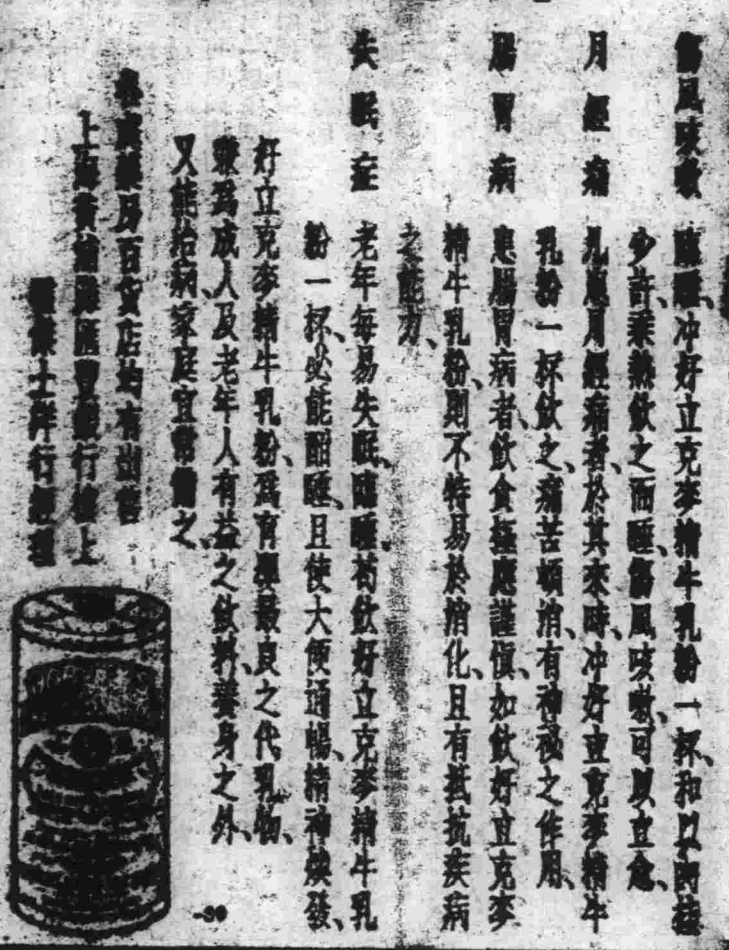 傷風咳嗽
臨睡、冲好立克麥精牛乳粉一杯、和以
少許、乘熱飲之而睡、傷風咳嗽、可以立愈、
月經痛
凡患月經痛者、於其來時、冲好立克麥精牛
乳粉一杯飲之、痛苦頓消、有神祕之作用、
腸胃病
患腸胃病者、飲食極應謹慎、如飲好立克麥
精牛乳粉、則不特易於消化、且有抵抗疾病
之能力、
失眠症
老年每易失眠、臨睡苟飲好立克麥精牛乳
粉一杯、必能酣睡、且使大便通暢、精神煥發、
好立克麥精牛乳粉、為育嬰最良之代乳物、
雖為成人及老年人有益之飲料、養身之外、
又能治病、家庭宜常備之、
各大藥房百貨店均有出售
上海 行樓上
洋行經理